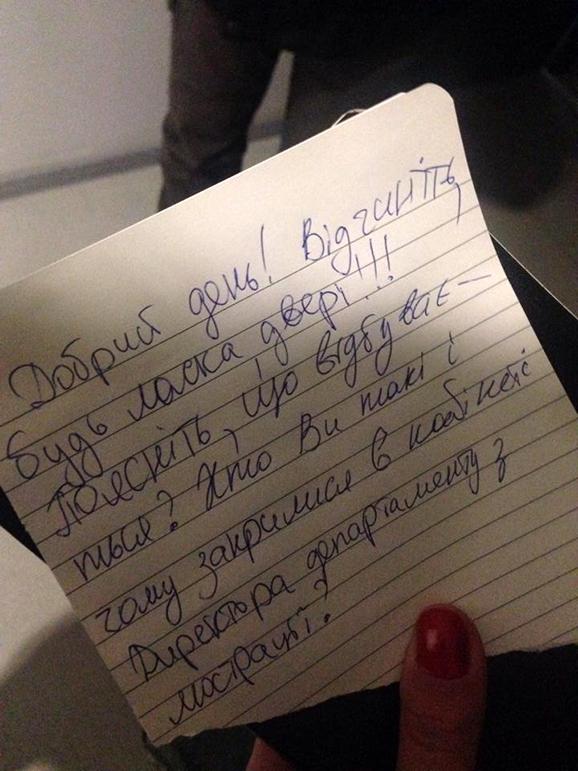 Добрий день! Відчиніть,
будь ласка двері!!!
Поясніть, що відбуває-
ться? Хто Ви такі і
чому закрилися в кабінеті
Директора департаменту з
люстрації?